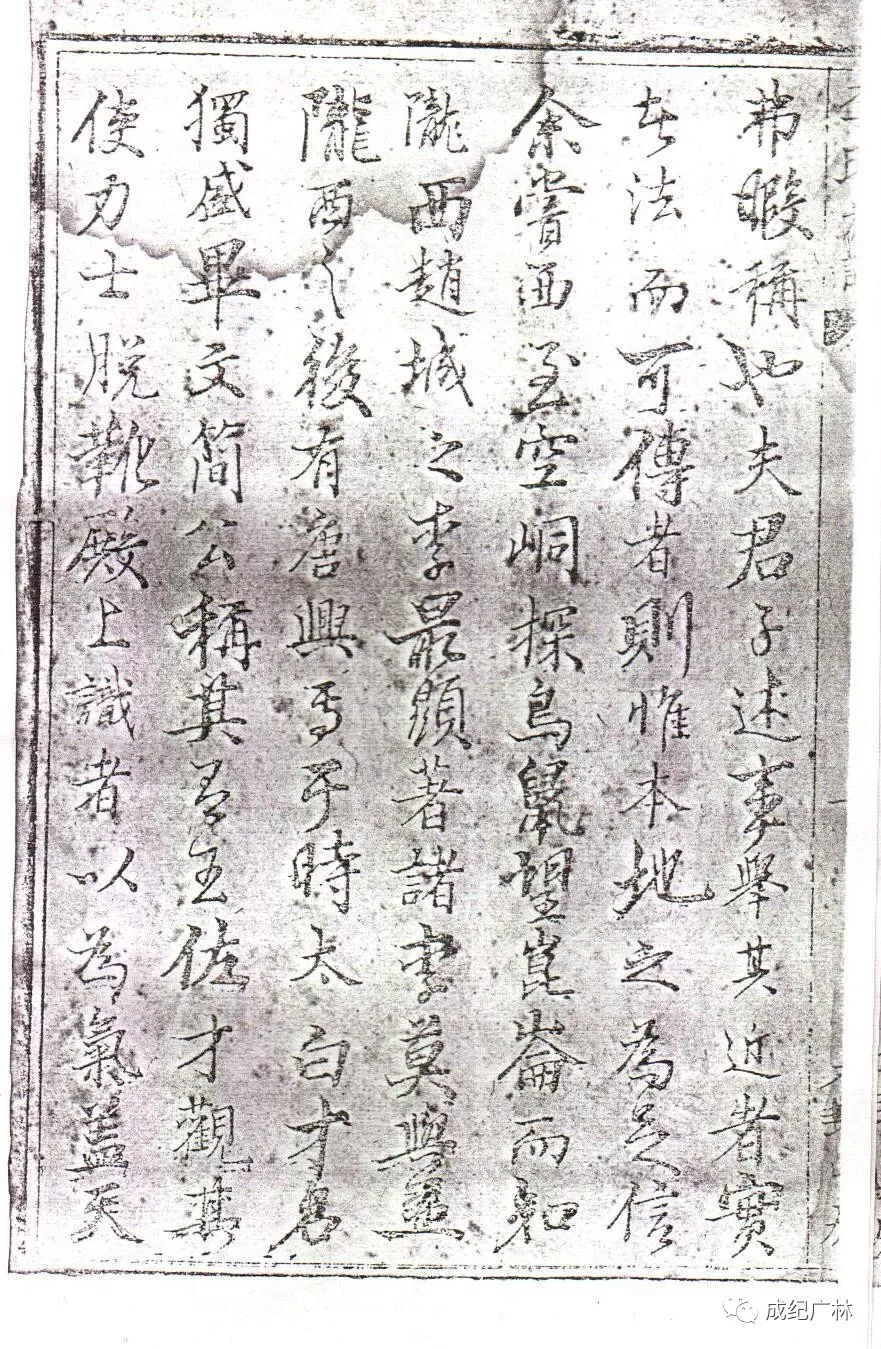 弗暇稱也夫君子述事舉其近者實
者法而可傳者則惟本地之為足信
余嘗西至空峒探鳥鼠望崑崙而知
隴西趙城之李最顯著諸李莫與並
隴西之後有唐興焉于時太白才名
獨盛畢文简公稱其有王佐才觀其
使力士脱靴殿上識者以為氣蓋天
成纪广林